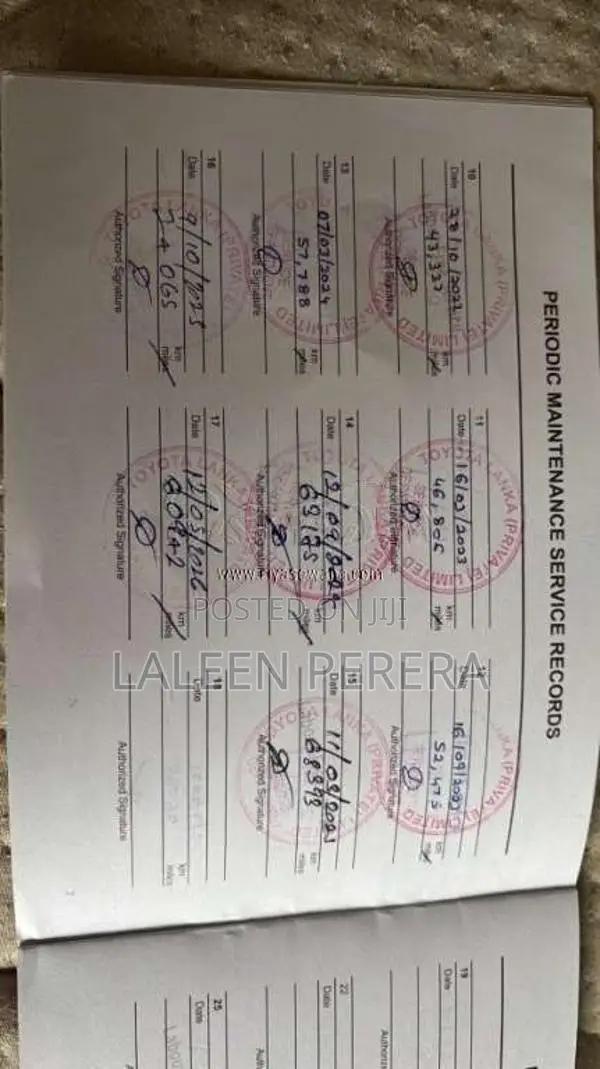 PERIODIC MAINTENANCE SERVICE RECORDS
10
Date 28/10/2022
43,327 km miles
Authorized Signature
11
Date 16/03/2023
46,806 km miles
Authorized Signature
12
Date 16/09/2023
52,475 km miles
Authorized Signature
13
Date 07/03/2024
57,788 km miles
Authorized Signature
14
Date
63175 km miles
Authorized Signature
15
Date 11/03/2025
68393 km miles
Authorized Signature
16
Date 9/10/2025
74065 km miles
Authorized Signature
17
Date 12/03/2026
km miles
Authorized Signature
18
Date
km miles
Authorized Signature
TOYOTA LANKA (PRIVATE) LIMITED
7
19
Date
22
Date
25
Date
POSTED ON JIJI
LALEEN PERERA